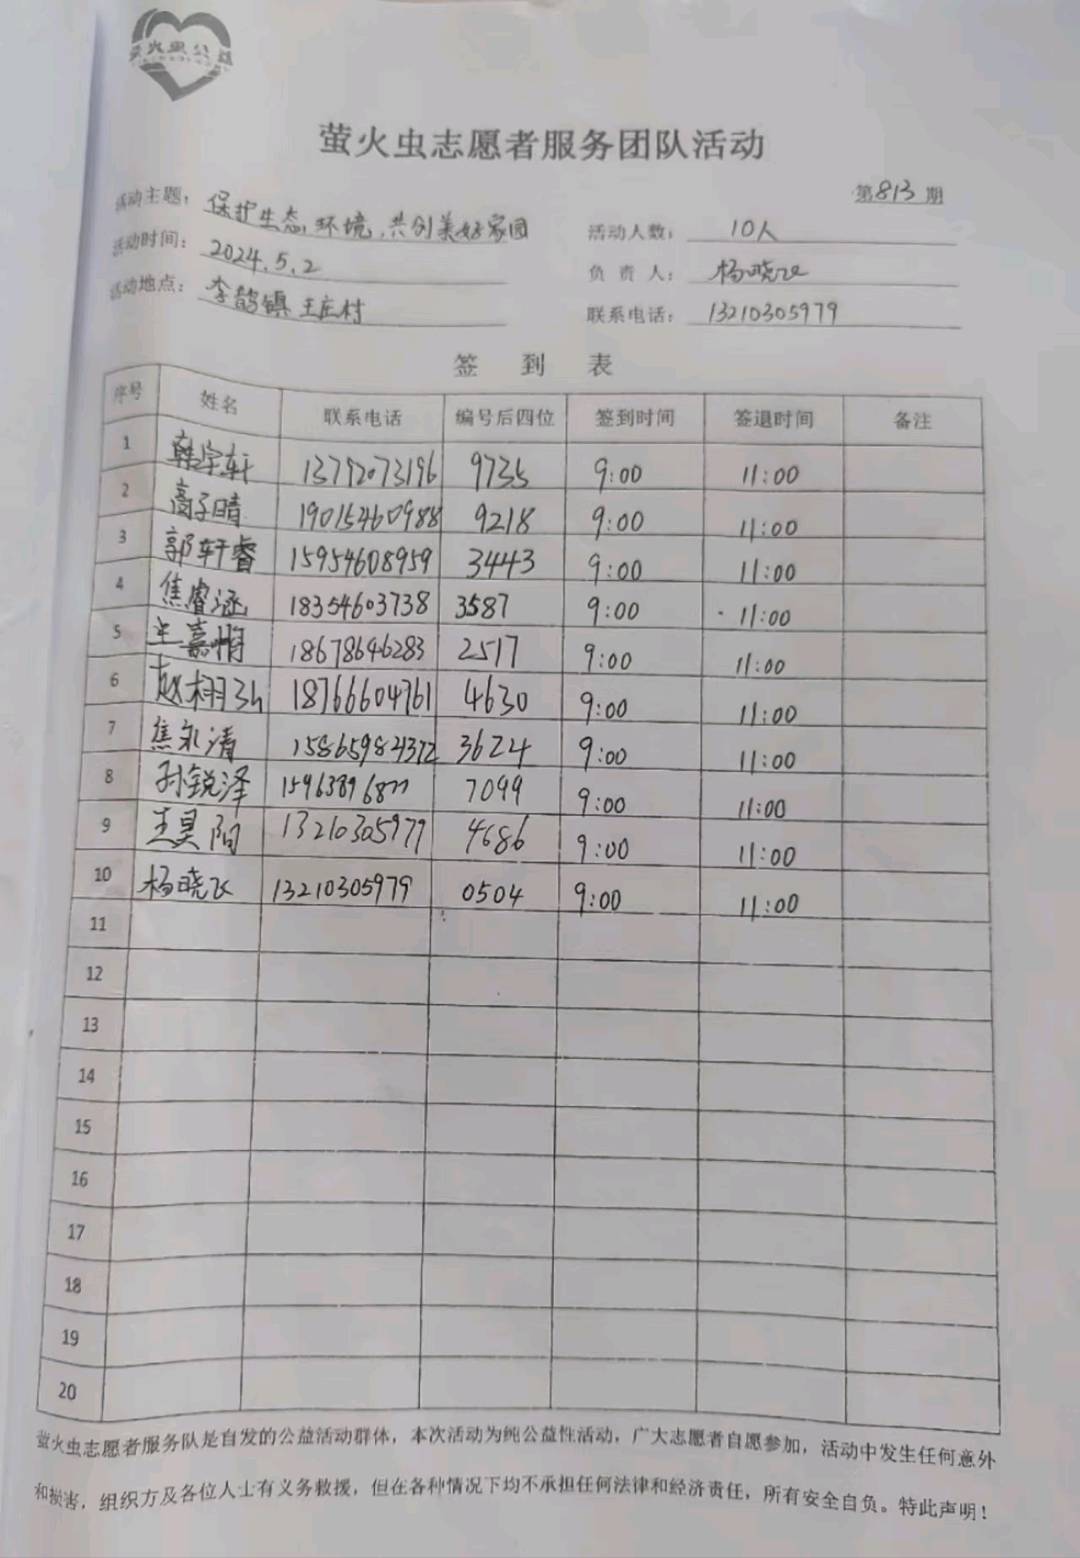 萤火虫公益
萤火虫志愿者服务团队活动
第813期
活动主题：保护生态环境，共创美好家园
活动人数：10人
活动时间：2024.5.2
负责人：杨晓飞
活动地点：李鹊镇王庄村
联系电话：13210305979
签到表
序号 姓名 联系电话 编号后四位 签到时间 签退时间 备注
1 韩宇轩 13792073196 9735 9:00 11:00
2 高子晴 19015460988 9218 9:00 11:00
3 郭轩睿 15954608959 3443 9:00 11:00
4 焦睿涵 18354603738 3587 9:00 11:00
5 嘉 18678646283 2517 9:00 11:00
6 赵栩 18766604761 4630 9:00 11:00
7 焦永清 15865984372 3624 9:00 11:00
8 孙锐泽 7099 9:00 11:00
9 王昊阳 13210305979 4686 9:00 11:00
10 杨晓飞 13210305979 0504 9:00 11:00
11
12
13
14
15
16
17
18
19
20
萤火虫志愿者服务队是自发的公益活动群体，本次活动为纯公益性活动，广大志愿者自愿参加，活动中发生任何意外
和损害，组织方及各位人士有义务救援，但在各种情况下均不承担任何法律和经济责任，所有安全自负。特此声明！